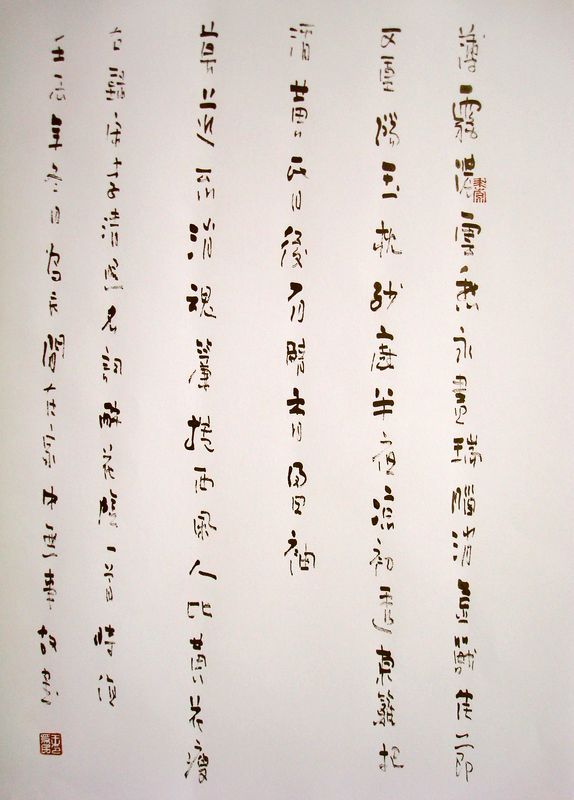 薄霧濃雲愁永晝瑞腦消金獸佳節
又重陽玉枕紗廚半夜涼初透東籬把
酒黃昏後有暗香盈袖
莫道不消魂簾捲西風人比黃花瘦
右錄李清照名詞醉花陰一首時
年冬月寫於書